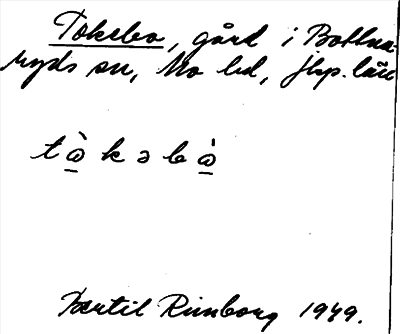 Toksbo, gård i Bottna-
ryds sn, Mo hd, Jkp. län
t ὼ k ə b ω̇
Bertil Rimborg 1949.